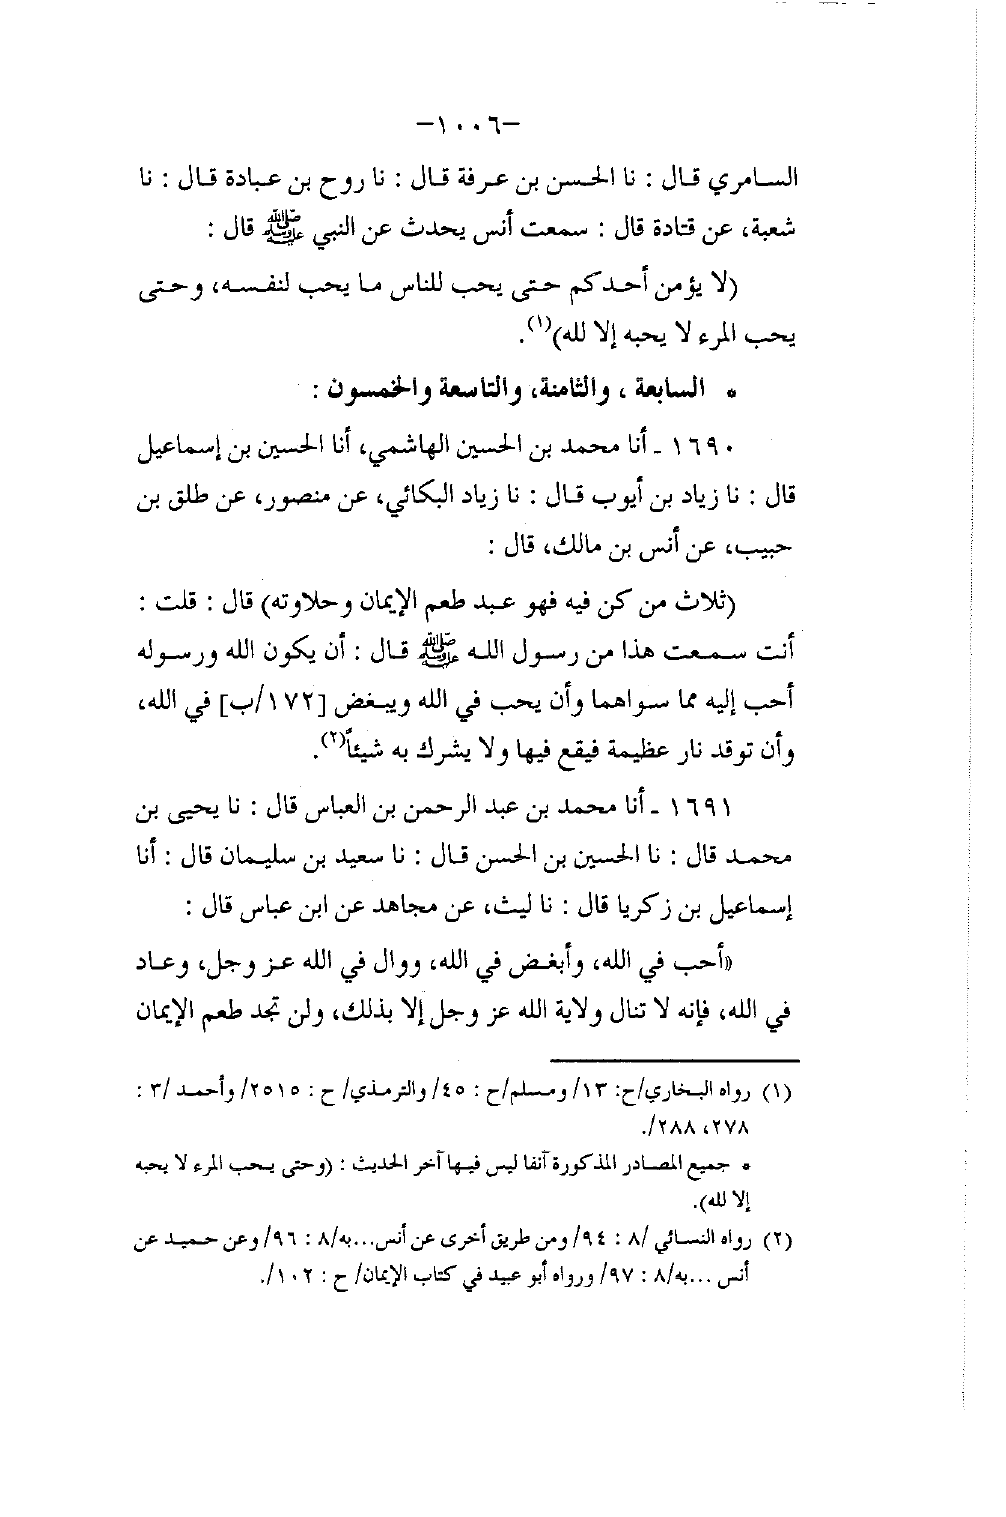 -١٠٠٦-
السامري قال : نا الحسن بن عرفة قال : نا روح بن عبادة قال : نا
شعبة، عن قتادة قال : سمعت أنس يحدث عن النبي ﷺ قال :
(لا يؤمن أحدكم حتى يحب للناس ما يحب لنفسه، وحتى
يحب المرء لا يحبه إلا لله)(١).
* السابعة ، والثامنة، والتاسعة والخمسون :
١٦٩٠ ـ أنا محمد بن الحسين الهاشمي، أنا الحسين بن إسماعيل
قال : نا زياد بن أيوب قال : نا زياد البكائي، عن منصور، عن طلق بن
حبيب، عن أنس بن مالك، قال :
(ثلاث من كن فيه فهو عبد طعم الإيمان وحلاوته) قال : قلت :
أنت سمعت هذا من رسول الله ﷺ قال : أن يكون الله ورسوله
أحب إليه مما سواهما وأن يحب في الله ويبغض [١٧٢/ب] في الله،
وأن توقد نار عظيمة فيقع فيها ولا يشرك به شيئاً(٢).
١٦٩١ ـ أنا محمد بن عبد الرحمن بن العباس قال : نا يحيى بن
محمد قال : نا الحسين بن الحسن قال : نا سعيد بن سليمان قال : أنا
إسماعيل بن زكريا قال : نا ليث، عن مجاهد عن ابن عباس قال :
«أحب في الله، وأبغض في الله، ووال في الله عز وجل، وعاد
في الله، فإنه لا تنال ولاية الله عز وجل إلا بذلك، ولن تجد طعم الإيمان
(١) رواه البخاري/ح: ١٣/ ومسلم/ح : ٤٥/ والترمذي/ ح : ٢٥١٥/ وأحمد /٣ :
٢٧٨، ٢٨٨/.
* جميع المصادر المذكورة آنفا ليس فيها آخر الحديث : (وحتى يحب المرء لا يحبه
إلا لله).
(٢) رواه النسائي /٨ : ٩٤/ ومن طريق أخرى عن أنس...به/٨ : ٩٦/ وعن حميد عن
أنس ...به/٨ : ٩٧/ ورواه أبو عبيد في كتاب الإيمان/ ح : ١٠٢/.